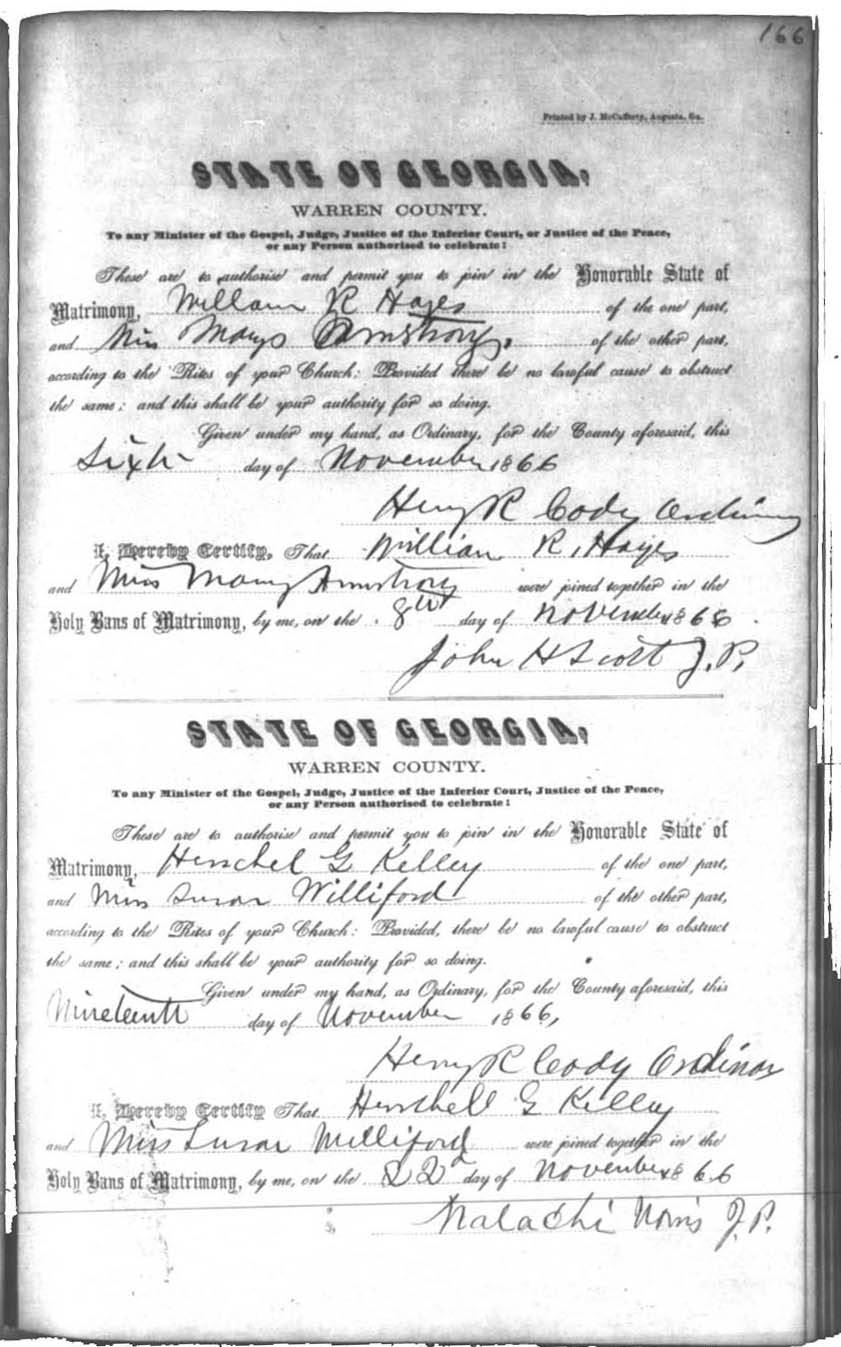 166
Printed by J. McCafferty, Augusta, Ga.
STATE OF GEORGIA,
WARREN COUNTY.
To any Minister of the Gospel, Judge, Justice of the Inferior Court, or Justice of the Peace,
or any Person authorised to celebrate:
These are to authorise and permit you to join in the Honorable State of
Matrimony, William R Hayes of the one part,
and Miss Mary Armstrong, of the other part,
according to the Rites of your Church: Provided there be no lawful cause to obstruct
the same; and this shall be your authority for so doing.
Given under my hand, as Ordinary, for the County aforesaid, this
Sixth day of November 1866
Henry R Cody Ordinary
I, Hereby Certify, That William R. Hayes
and Miss Mary Armstrong were joined together in the
Holy Bans of Matrimony, by me, on the 8th day of November 1866
John H Scott J.P.
STATE OF GEORGIA,
WARREN COUNTY.
To any Minister of the Gospel, Judge, Justice of the Inferior Court, Justice of the Peace,
or any Person authorised to celebrate:
These are to authorise and permit you to join in the Honorable State of
Matrimony, Herschel G Kelley of the one part,
and Miss Susan Williford of the other part,
according to the Rites of your Church: Provided, there be no lawful cause to obstruct
the same; and this shall be your authority for so doing.
Given under my hand, as Ordinary, for the County aforesaid, this
Nineteenth day of November 1866,
Henry R Cody Ordinar
I, Hereby Certify That Herschell G Kelley
and Miss Susan Williford were joined together in the
Holy Bans of Matrimony, by me, on the 22d day of November 1866
Malachi Norris J.P.